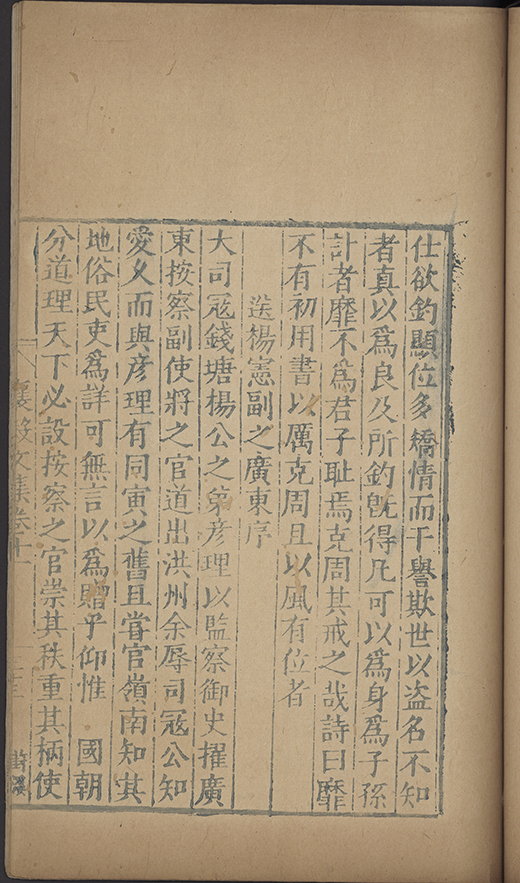 仕欲釣顯位多矯情而干譽欺世以盗名不知
者真以為良及所釣旣得凡可以為身為子孫
計者靡不為君子耻焉克周其戒之哉詩曰靡
不有初用書以厲克周且以風有位者
送楊憲副之廣東序
大司冦錢塘楊公之弟彦理以監察御史擢廣
東按察副使將之官道出洪州余辱司冦公知
愛乆而與彦理有同寅之舊且甞官嶺南知其
地俗民吏為詳可無言以為贈乎仰惟 國朝
分道理天下必設按察之官崇其秩重其柄使
襄毅文集卷十一